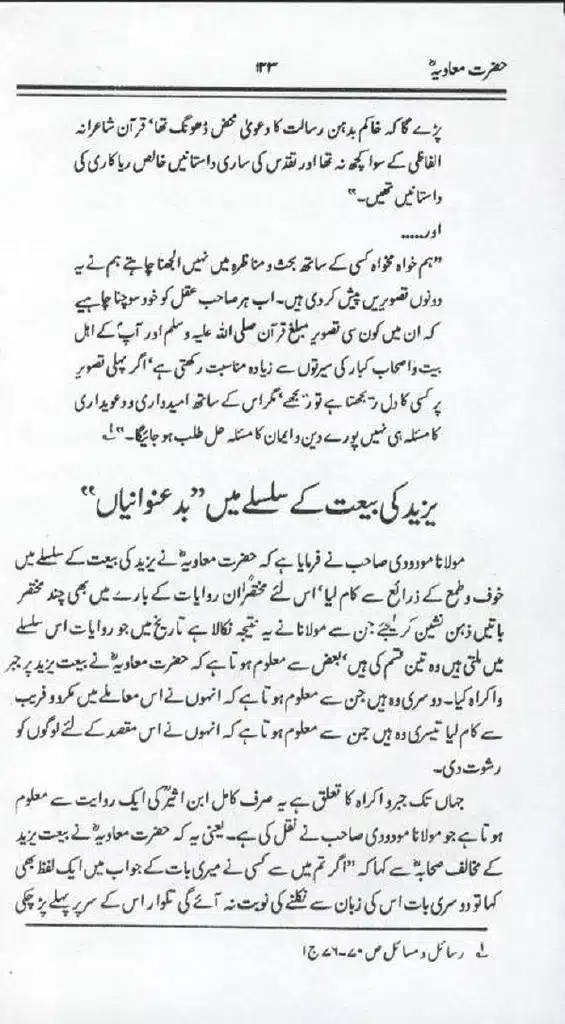 حضرت معاویہؓ
۱۲۳
پڑے گا کہ خاکم بدہن رسالت کا دعویٰ محض ڈھونگ تھا‘ قرآن شاعرانہ
الفاظی کے سوا کچھ نہ تھا اور تقدس کی ساری داستانیں خالص ریاکاری کی
داستانیں تھیں۔"
اور.....
"ہم خواہ مخواہ کسی کے ساتھ بحث و مناظرہ میں نہیں الجھنا چاہتے ہم نے یہ
دونوں تصویریں پیش کر دی ہیں۔ اب ہر صاحب عقل کو خود سوچنا چاہیے
کہ ان میں کون سی تصویر مبلغ قرآن صلی اللہ علیہ وسلم اور آپؐ کے اہل
بیت و اصحاب کبار کی سیرتوں سے زیادہ مناسبت رکھتی ہے‘ اگر پہلی تصویر
پر کسی کا دل ریجھتا ہے تو ریجھے‘ مگر اس کے ساتھ امیدداری و دعویداری
کا مسئلہ ہی نہیں پورے دین و ایمان کا مسئلہ حل طلب ہو جائیگا۔" لے
یزید کی بیعت کے سلسلے میں "بدعنوانیاں"
مولانا مودودی صاحب نے فرمایا ہے کہ حضرت معاویہؓ نے یزید کی بیعت کے سلسلے میں
خوف و طمع کے ذرائع سے کام لیا‘ اس لئے مختصراً ان روایات کے بارے میں بھی چند مختصر
باتیں ذہن نشین کر لیجئے جن سے مولانا نے یہ نتیجہ نکالا ہے تاریخ میں جو روایات اس سلسلے
میں ملتی ہیں وہ تین قسم کی ہیں‘ بعض سے معلوم ہوتا ہے کہ حضرت معاویہؓ نے بیعت یزید پر جبر
و اکراہ کیا۔ دوسری وہ ہیں جن سے معلوم ہوتا ہے کہ انہوں نے اس معاملے میں مکر و فریب
سے کام لیا تیسری وہ ہیں جن سے معلوم ہوتا ہے کہ انہوں نے اس مقصد کے لئے لوگوں کو
رشوت دی۔
جہاں تک جبر و اکراہ کا تعلق ہے یہ صرف کامل ابن اثیرؒ کی ایک روایت سے معلوم
ہوتا ہے جو مولانا مودودی صاحب نے نقل کی ہے۔ یعنی یہ کہ حضرت معاویہؓ نے بیعت یزید
کے مخالف صحابہؓ سے کہا کہ "اگر تم میں سے کسی نے میری بات کے جواب میں ایک لفظ بھی
کہا تو دوسری بات اس کی زبان سے نکلنے کی نوبت نہ آئے گی تلوار اس کے سر پر پہلے پڑ چکی
لے رسائل و مسائل ص ۷۰-۷۶ ج ۱